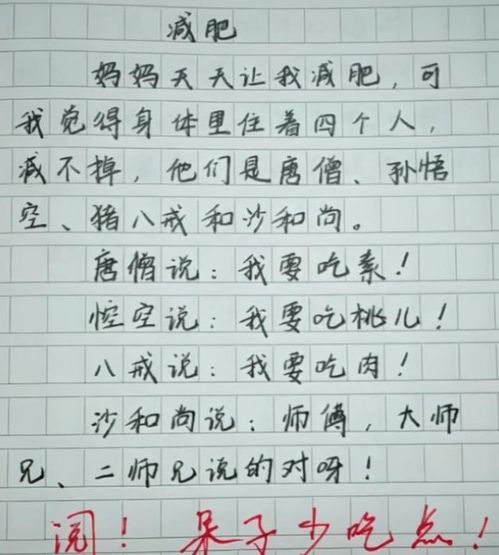 减肥
妈妈天天让我减肥,可
我觉得身体里住着四个人,
减不掉,他们是唐僧、孙悟
空、猪八戒和沙和尚。
唐僧说:我要吃素!
悟空说:我要吃桃儿!
八戒说:我要吃肉!
沙和尚说:师傅,大师
兄、二师兄说的对呀!
阅!呆子少吃点!